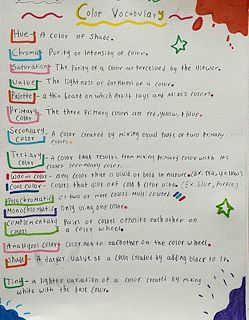 Color Vocabulary
Hue - A color of Shade.
Chroma - Purity or Intensity of color.
Saturation - The Purity of a color as perceived by the viewer.
Value - The lightness or darkness of a color.
Palette - a thin board on which Artist lays and mixes colors.
Primary Color - The three Primary colors are red, yellow, & blue.
Secondary Color - A color created by mixing equal parts of two primary
colors.
Tertiary Color - A color that results from mixing primary color with its
secondary color.
Warm color - any color that is vivid or bold in nature (ex. red, yellow)
Cool color - colors that give off cold & clear vibe. (Ex. blue, purple)
Polychromatic - two or more colors multi-colored.
Monochromatic - Only using one color.
Complementary Colors - Pairs of colors opposite each other on
a color wheel.
Analogous color - Color next to eachother on the color wheel.
Shade - A darker value of a color created by adding black to it.
Tiny - a lighter variation of a color created by mixing
white with the base color.